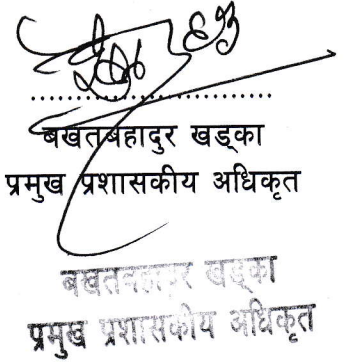 बखतबहादुर खड्का
प्रमुख प्रशासकीय अधिकृत
बखतबहादुर खड्का
प्रमुख प्रशासकीय अधिकृत